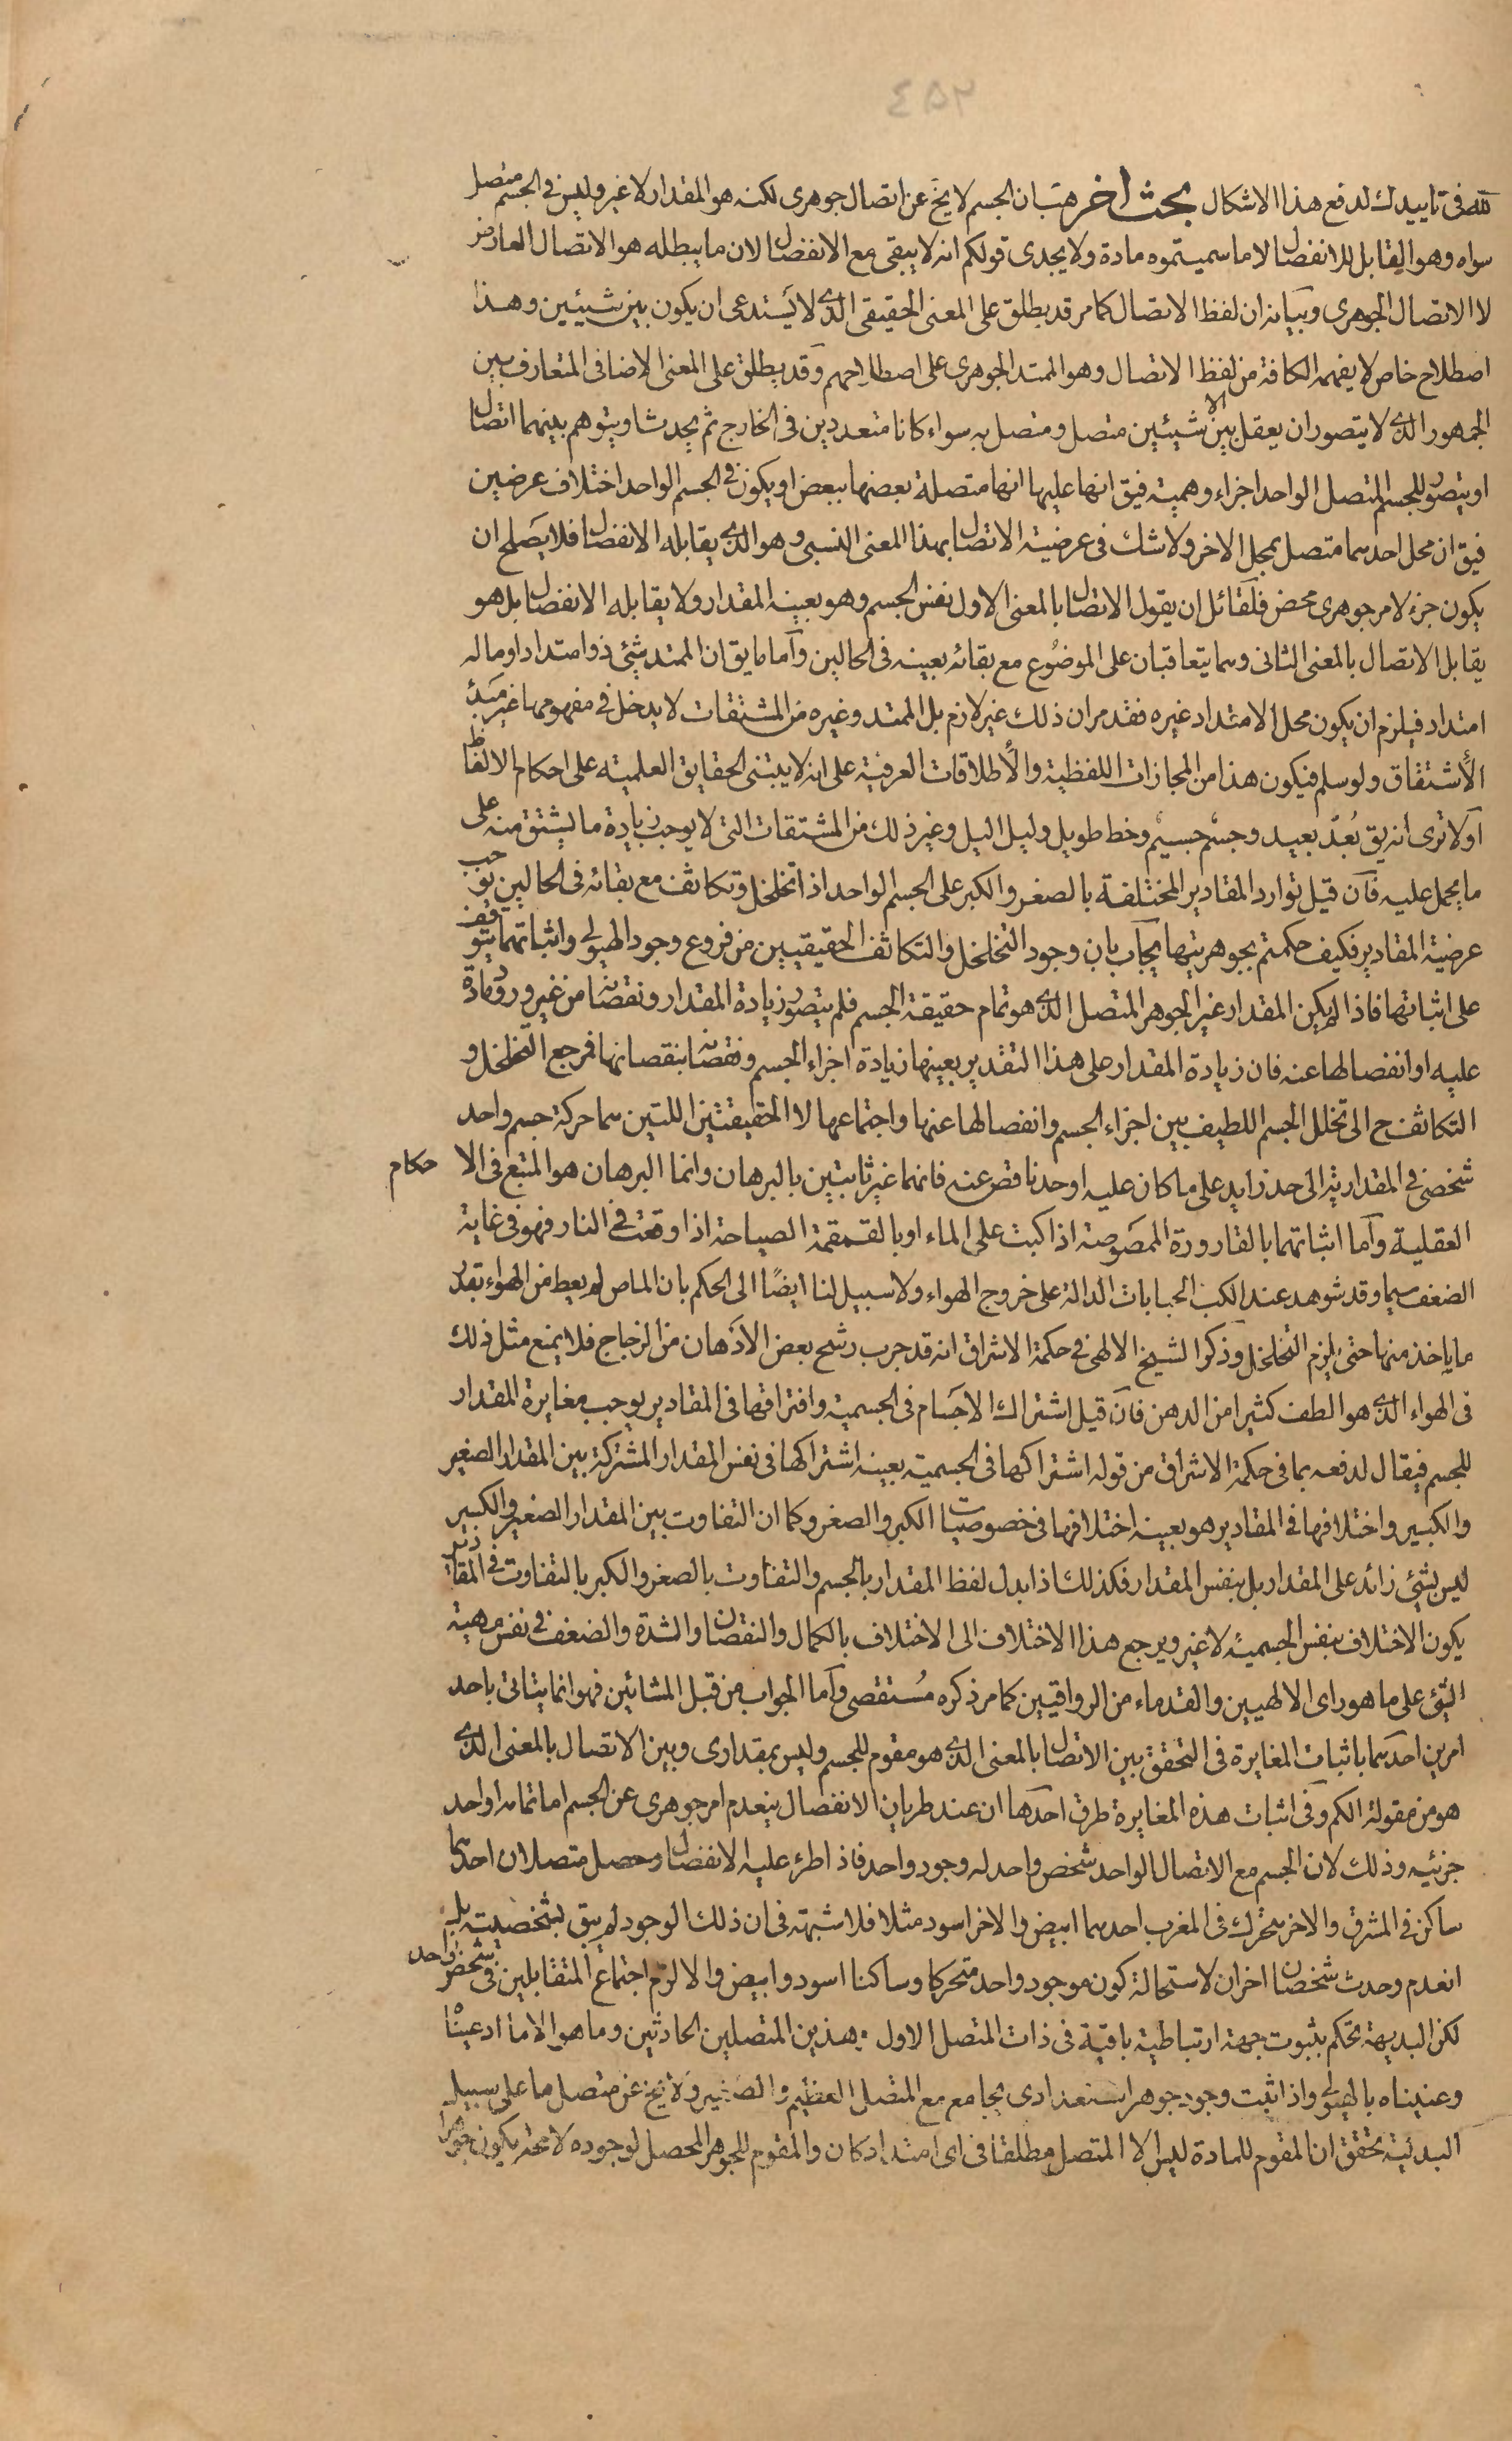 ٢٥٤
لله في تاييدك لدفع هذا الاشكال بحث اخر هب ان الجسم لا يخ عن اتصال جوهرى لكنه هو المقدار لا غير وليس في الجسم متصل
سواه وهو القابل للانفصال لا ما سميتموه مادة ولا يجدى قولكم انه لا يبقى مع الانفصال لان ما يبطله هو الاتصال العارض
لا الاتصال الجوهرى وبيانه ان لفظ الاتصال كما مر قد يطلق على المعنى الحقيقى الذى لا يستدعى ان يكون بين شيئين وهذا
اصطلاح خاص لا يفهمه الكافة من لفظ الاتصال وهو الممتد الجوهرى على اصطلاحهم وقد يطلق على المعنى الاضافى المتعارف بين
الجمهور الذى لا يتصور ان يعقل الا بين شيئين متصل ومتصل به سواء كانا متعددين فى الخارج ثم يحدث او يتوهم بينهما اتصال
او يتصور للجسم المتصل الواحد اجزاء وهمية فيق انها عليها انها متصلة بعضها ببعض او يكون في الجسم الواحد اختلاف عرضين
فيق ان محل احدهما متصل بمحل الاخر ولا شك فى عرضية الاتصال بهذا المعنى النسبى وهو الذى يقابله الانفصال فلا يصلح ان
يكون جزء لامر جوهرى محض فلقائل ان يقول الاتصال بالمعنى الاول نفس الجسم وهو بعينه المقدار ولا يقابله الانفصال بل هو
يقابل الاتصال بالمعنى الثانى وهما يتعاقبان على الموضوع مع بقائه بعينه فى الحالين واما ما يق ان الممتد شئ ذو امتداد او ما له
امتداد فيلزم ان يكون محل الامتداد غيره فقد مر ان ذلك غير لازم بل الممتد وغيره من المشتقات لا يدخل في مفهومها غير مبدأ
الأشتقاق ولو سلم فيكون هذا من المجازات اللفظية والأطلاقات العرفية على انه لا يبتنى الحقايق العلمية على احكام الالفاظ
اولا ترى انه يق بُعدٌ بعيد وجسمٌ جسيمٌ وخط طويل وليل اليل وغير ذلك من المشتقات التى لا يوجب زيادة ما يشتق منه على
ما يحمل عليه فان قيل توارد المقادير المختلفة بالصغر والكبر على الجسم الواحد اذا تخلخل وتكاثف مع بقائه فى الحالين يوجب
عرضية المقادير فكيف حكمتم بجوهريتها يجاب بان وجود التخلخل والتكاثف الحقيقيين من فروع وجود الهيولى واثباتهما يتوقف
على اثباتها فاذا لم يكن المقدار غير الجوهر المتصل الذى هو تمام حقيقة الجسم فلم يتصور زيادة المقدار ونقصانه من غير ورود مادة
عليه او انفصالها عنه فان زيادة المقدار على هذا التقدير بعينها زيادة اجزاء الجسم ونقصانه بنقصانها فرجع التخلخل و
التكاثف ح الى تخلل الجسم اللطيف بين اجزاء الجسم وانفصالها عنها واجتماعها لا الحقيقتين اللتين هما حركة جسم واحد
شخصى في المقدارية الى حد زايد على ما كان عليه او حد ناقص عنه فانهما غير ثابتين بالبرهان وانما البرهان هو المتبع فى الاحكام
العقلية واما اثباتهما بالقارورة الممصوصة اذا كبت على الماء او بالقمقمة الصياحة اذا وقعت في النار فهو فى غاية
الضعف سيما وقد شوهد عند الكب الحبابات الدالة على خروج الهواء ولا سبيل لنا ايضًا الى الحكم بان الماص لم يعط من الهواء بقدر
ما ياخذ منها حتى يلزم التخلخل وذكر الشيخ الالهى في حكمة الاشراق انه قد جرب رشح بعض الادهان من الزجاج فلا يمنع مثل ذلك
فى الهواء الذى هو الطف كثيرا من الدهن فان قيل اشتراك الاجسام فى الجسمية وافتراقها فى المقادير يوجب مغايرة المقدار
للجسم فيقال لدفعه بما فى حكمة الاشراق من قوله اشتراكها فى الجسمية بعينه اشتراكها فى نفس المقدار المشتركة بين المقدار الصغير
والكبير واختلافها في المقادير هو بعينه اختلافها فى خصوصيات الكبر والصغر وكما ان التفاوت بين المقدار الصغير والكبير
ليس بشئ زائد على المقدار بل بنفس المقدار فكذلك اذا بدل لفظ المقدار بالجسم والتفاوت بالصغر والكبر بالتفاوت في المقادير
يكون الاختلاف بنفس الجسمية لا غير ويرجع هذا الاختلاف الى الاختلاف بالكمال والنقصان والشدة والضعف في نفس مهية
الشئ على ما هو راى الالهيين والقدماء من الرواقيين كما مر ذكره مُستقصى واما الجواب من قبل المشائين فهو انما يتاتى باحد
امرين احدهما باثبات المغايرة فى التحقق بين الاتصال بالمعنى الذى هو مقوم للجسم وليس بمقدارى وبين الاتصال بالمعنى الذى
هو من مقولة الكم وفى اثبات هذه المغايرة طرق احدها ان عند طريان الانفصال ينعدم امر جوهرى عن الجسم اما تمامه او احد
جزئيه وذلك لان الجسم مع الاتصال الواحد شخص واحد له وجود واحد فاذا طرء عليه الانفصال وحصل متصلان احدهما
ساكن في المشرق والاخر متحرك فى المغرب احدهما ابيض والاخر اسود مثلا فلا شبهة فى ان ذلك الوجود لم يبق بشخصيته بل
انعدم وحدث شخصان اخران لاستحالة كون موجود واحد متحركا وساكنا اسود وابيض والا لزم اجتماع المتقابلين فى شخص واحد
لكن البديهة تحكم بثبوت جهة ارتباطية باقية فى ذات المتصل الاول بهذين المتصلين الحادثين وما هو الا ما ادعيناه
وعنيناه بالهيولى واذا ثبت وجود جوهر استعدادى يجامع مع المتصل العظيم والصغير ولا يخ عن متصل ما على سبيل
البدلية تحقق ان المقوم للمادة ليس الا المتصل مطلقا فى اى امتداد كان والمقوم للجوهر المحصل لوجوده لا محة يكون جوهرا